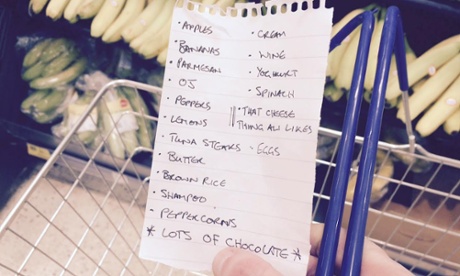 · APPLES
· BANANAS
· PARMESAN
· OJ
· PEPPERS
· LEMONS
· TUNA STEAKS
· BUTTER
· BROWN RICE
· SHAMPOO
· PEPPERCORNS
* LOTS OF CHOCOLATE *
· CREAM
· WINE
· YOGHURT
· SPINACH
· THAT CHEESE
THING AL LIKES
· EGGS